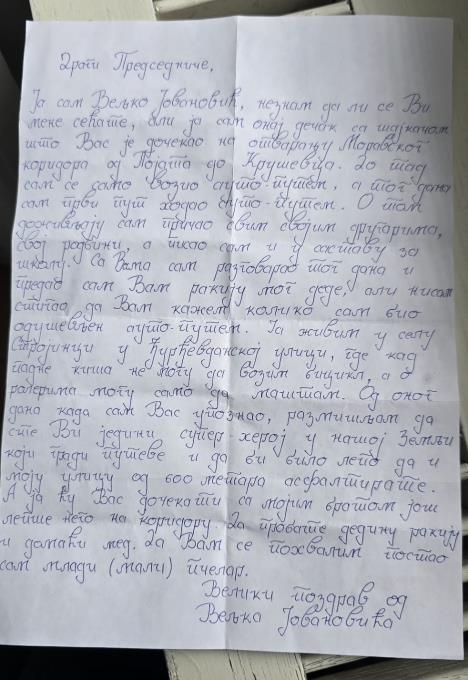 Драги Председниче,
Ја сам Вељко Јовановић, незнам да ли се Ви
мене сећате, али ја сам онај дечак са шајкачом
што Вас је дочекао на отварању Моравског
коридора од Појата до Крушевца. До тад
сам се само возио ауто-путем, а тог дана
сам први пут ходао ауто-путем. О том
доживљају сам причао свим својим другарима,
свој родбини, а писао сам и у саставу за
школу. Са Вама сам разговарао тог дана и
предао сам Вам ракију мог деде, али нисам
стигао да Вам кажем колико сам био
одушевљен ауто-путем. Ја живим у селу
Стројинци у Ђурђевданској улици, где кад
падне киша не могу да возим бицикл, а о
ролерима могу само да маштам. Од оног
дана када сам Вас упознао, размишљам да
сте Ви једини супер-херој у нашој Земљи
који гради путеве и да би било лепо да и
моју улицу од 600 метара асфалтирате.
А ја ћу Вас дочекати са мојим братом још
лепше него на коридору. Да пробате дедину ракију
и домаћи мед. Да Вам се похвалим постао
сам млади (мали) пчелар.
Велики поздрав од
Вељка Јовановића